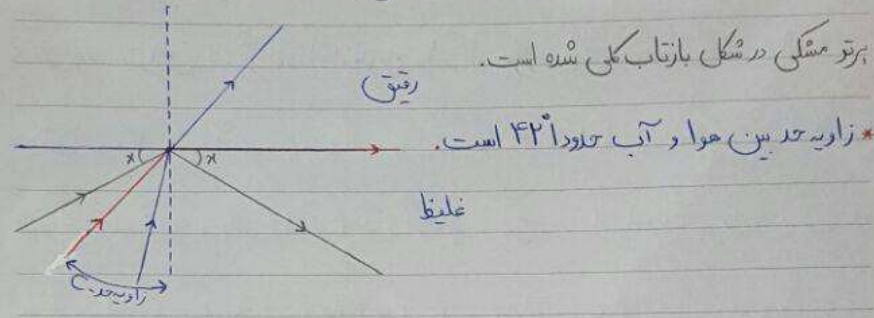 پرتو مشکی در شکل بازتاب کلی شده است.
رقیق
* زاویه حد بین هوا و آب حدوداً ۴۲° است.
x x
غلیظ
زاویه حد C